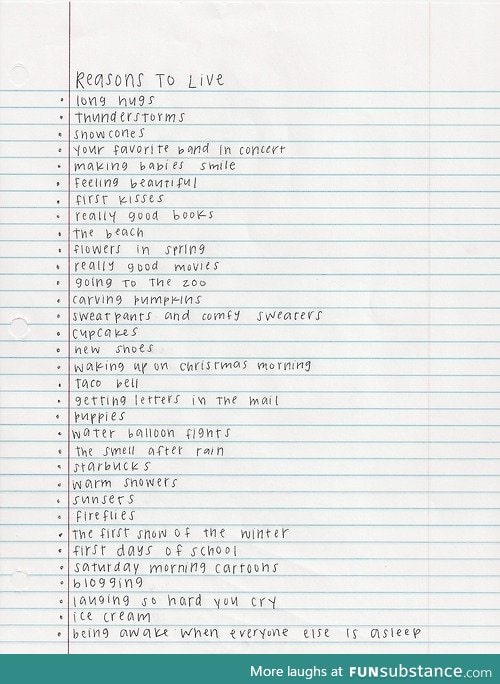 Reasons To Live
• long hugs
• thunderstorms
• snowcones
• your favorite band in concert
• making babies smile
• feeling beautiful
• first kisses
• really good books
• the beach
• flowers in spring
• really good movies
• going to the zoo
• carving pumpkins
• sweatpants and comfy sweaters
• cupcakes
• new shoes
• waking up on christmas morning
• taco bell
• getting letters in the mail
• puppies
• water balloon fights
• the smell after rain
• starbucks
• warm showers
• sunsets
• fireflies
• the first snow of the winter
• first days of school
• saturday morning cartoons
• blogging
• lauging so hard you cry
• ice cream
• being awake when everyone else is asleep
More laughs at FUNsubstance.com